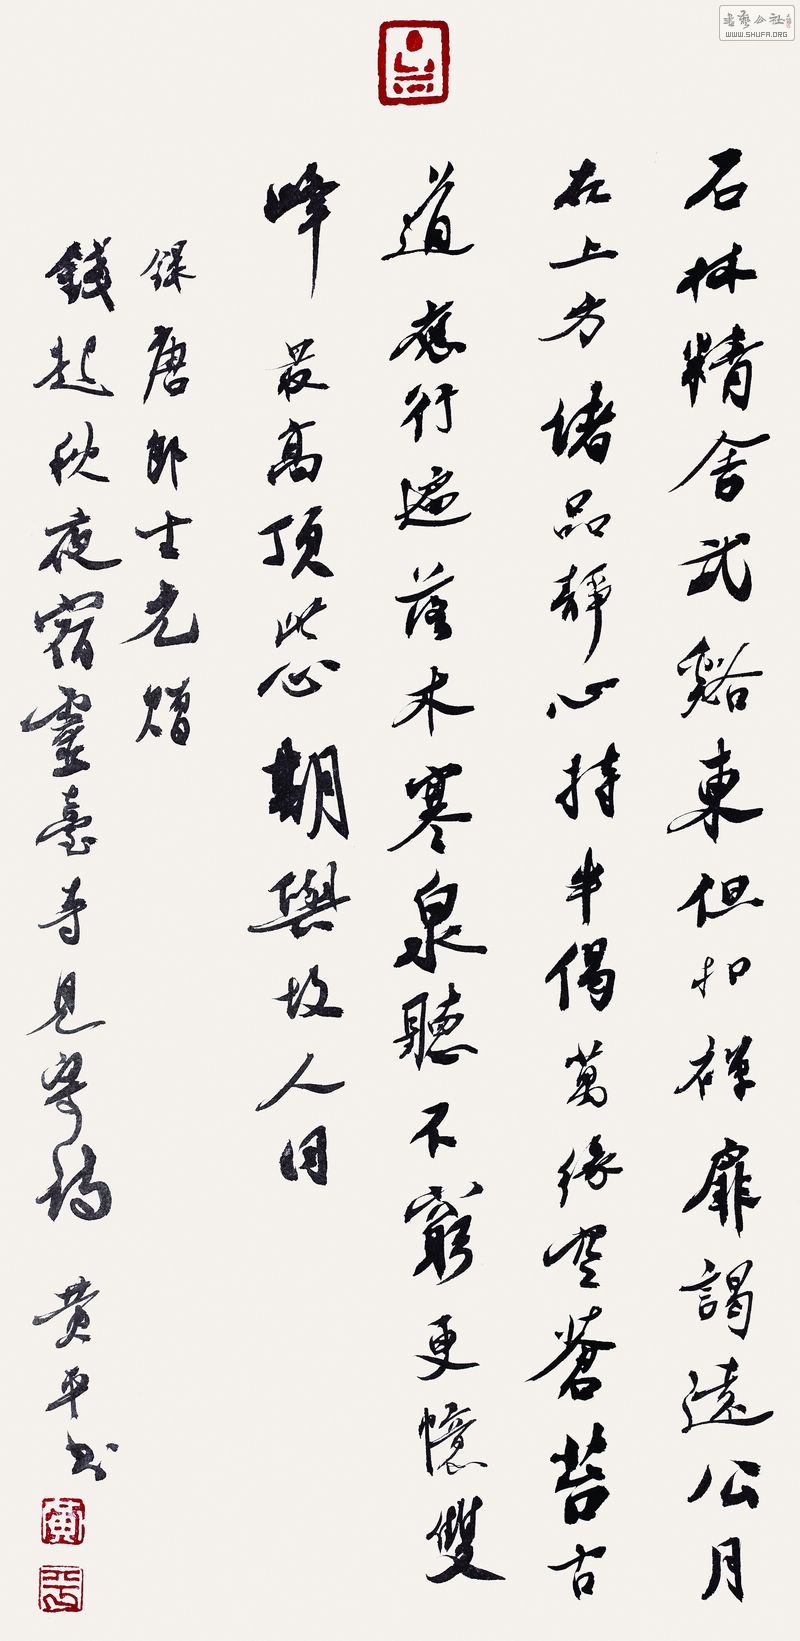 石林精舍武谿東但扣禪扉謁遠公月
在上方諸品靜心持半偈萬緣空蒼苔古
道應行遍落木寒泉聽不窮更憶雙
峰最高頂此心期與故人同
錄唐郎士元贈
錢起秋夜宿靈臺寺見寄詩 黄平书
黄
平
書藝公社
WWW.SHUFA.ORG